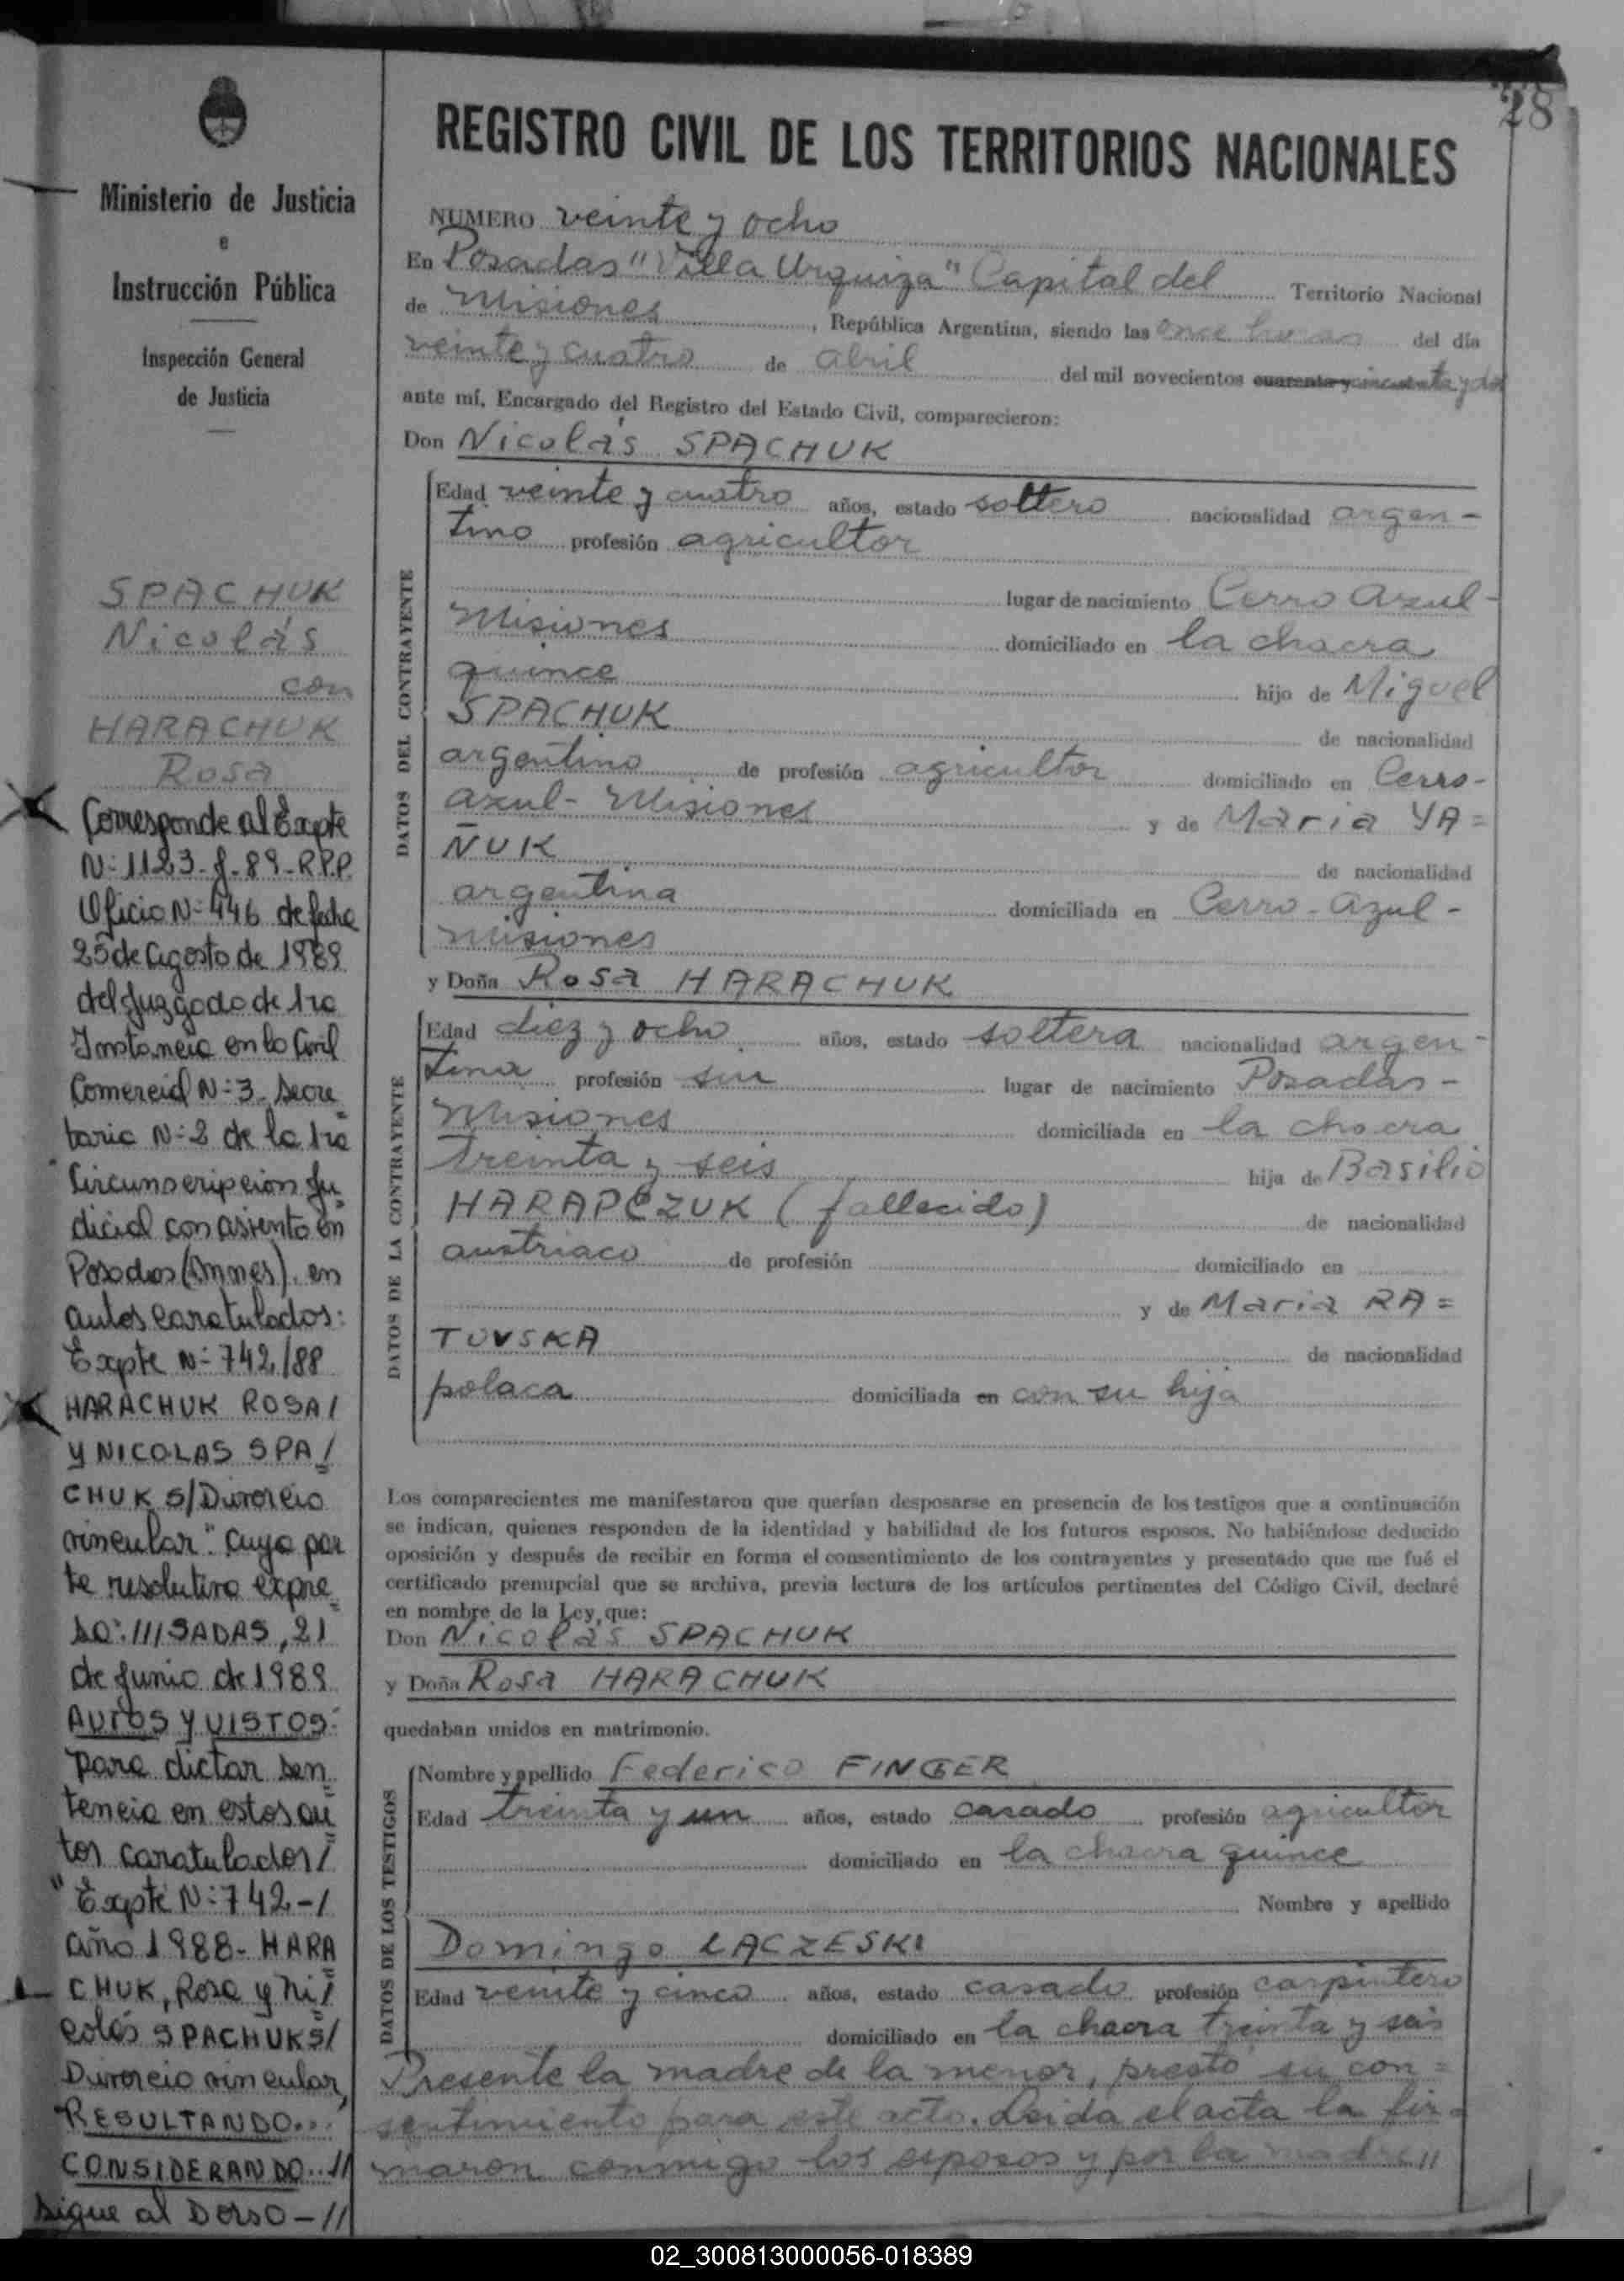 28
REGISTRO CIVIL DE LOS TERRITORIOS NACIONALES
Ministerio de Justicia
e
Instrucción Pública
Inspección General
de Justicia
SPACHUK
Nicolás
con
HARACHUK
Rosa
Corresponde al Expte
N=1123-J-89-R.P.P.
Oficio N=446 de fecha
25 de Agosto de 1989
del Juzgado de 1ra
Instancia en lo Civil
Comercial N=3 Secre=
taria N=2 de la 1ra
Circunscripcion Ju=
dicial con asiento en
Posadas (Mnes). en
autos caratulados:
Expte N=742/88
HARACHUK ROSA/
Y NICOLAS SPA/
CHUK S/Divorcio
vincular". Cuya par
te resolutiva expre=
sa: ///SADAS, 21
de Junio de 1989
AUTOS Y VISTOS:
Para dictar sen=
tencia en estos au=
tos caratulados/
"Expte N=742-/
año 1988- HARA=
CHUK, Rosa y Ni/
colás SPACHUK S/
Divorcio vincular,
RESULTANDO...
CONSIDERANDO..//
Sigue al Dorso-//
NUMERO veinte y ocho
En Posadas "Villa Urquiza" Capital del Territorio Nacional
de Misiones, República Argentina, siendo las once horas del día
veinte y cuatro de abril del mil novecientos cuarenta y cincuenta y dos
ante mí, Encargado del Registro del Estado Civil, comparecieron:
Don Nicolás SPACHUK
DATOS DEL CONTRAYENTE
Edad veinte y cuatro años, estado soltero nacionalidad argen-
tino profesión agricultor
lugar de nacimiento Cerro Azul-
Misiones domiciliado en la chacra
quince hijo de Miguel
SPACHUK de nacionalidad
argentino de profesión agricultor domiciliado en Cerro-
azul- Misiones y de Maria YA=
ÑUK de nacionalidad
argentina domiciliada en Cerro-Azul-
Misiones
y Doña Rosa HARACHUK
DATOS DE LA CONTRAYENTE
Edad diez y ocho años, estado soltera nacionalidad argen-
tina profesión sin lugar de nacimiento Posadas-
Misiones domiciliada en la chacra
treinta y seis hija de Basilio
HARAPCZUK (fallecido) de nacionalidad
austriaco de profesión domiciliado en
y de Maria RA=
TUVSKA de nacionalidad
polaca domiciliada en con su hija
Los comparecientes me manifestaron que querían desposarse en presencia de los testigos que a continuación
se indican, quienes responden de la identidad y habilidad de los futuros esposos. No habiéndose deducido
oposición y después de recibir en forma el consentimiento de los contrayentes y presentado que me fué el
certificado prenupcial que se archiva, previa lectura de los artículos pertinentes del Código Civil, declaré
en nombre de la Ley, que:
Don Nicolás SPACHUK
y Doña Rosa HARACHUK
quedaban unidos en matrimonio.
DATOS DE LOS TESTIGOS
Nombre y apellido Federico FINGER
Edad treinta y un años, estado casado profesión agricultor
domiciliado en la chacra quince
Nombre y apellido
Domingo LACZESKI
Edad veinte y cinco años, estado casado profesión carpintero
domiciliado en la chacra treinta y seis
Presente la madre de la menor, prestó su con=
sentimiento para este acto. Leida el acta la fir=
maron conmigo los esposos y por la madre //
02_300813000056-018389